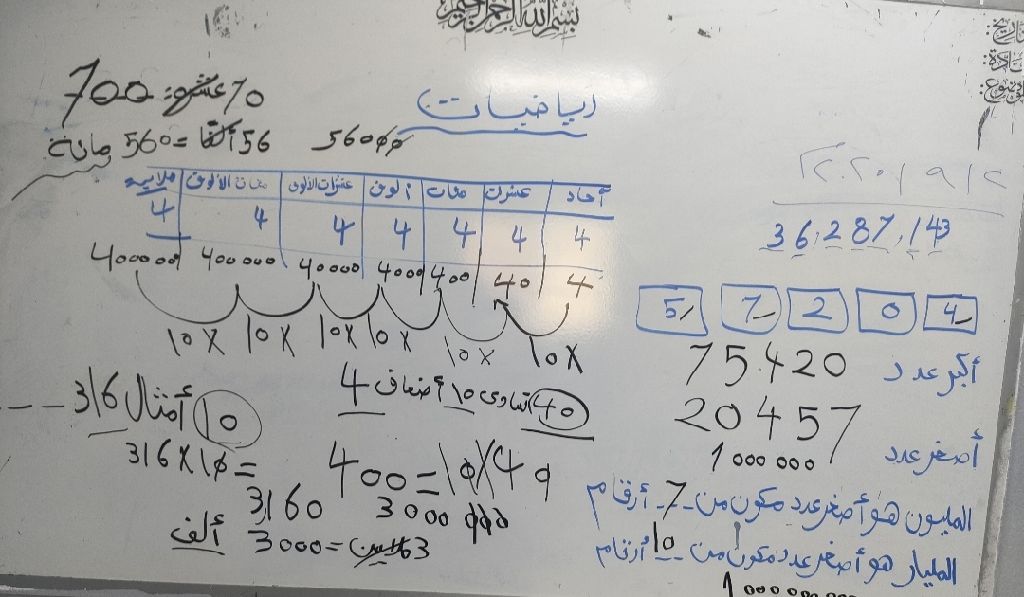 بسم الله الرحمن الرحيم
التاريخ:
المادة:
الموضوع:
رياضيات
70 عشرة = 700
56 ألفا = 560 مائة
56000
آحاد عشرات مئات ألوف عشرات الألوف مئات الألوف ملايين
4 4 4 4 4 4 4
4 40 400 4000 40000 400000 4000000
10x 10x 10x 10x 10x 10x
36,287,143
5 7 2 0 4
أكبر عدد 75420
أصغر عدد 20457
1000000
المليون هو أصغر عدد مكون من 7 أرقام
المليار هو أصغر عدد مكون من 10 أرقام
40 تساوى 10 أضعاف 4
400=10X40
10 أمثال 316
316X10=
3160
3000000
3 ملايين = 3000 ألف